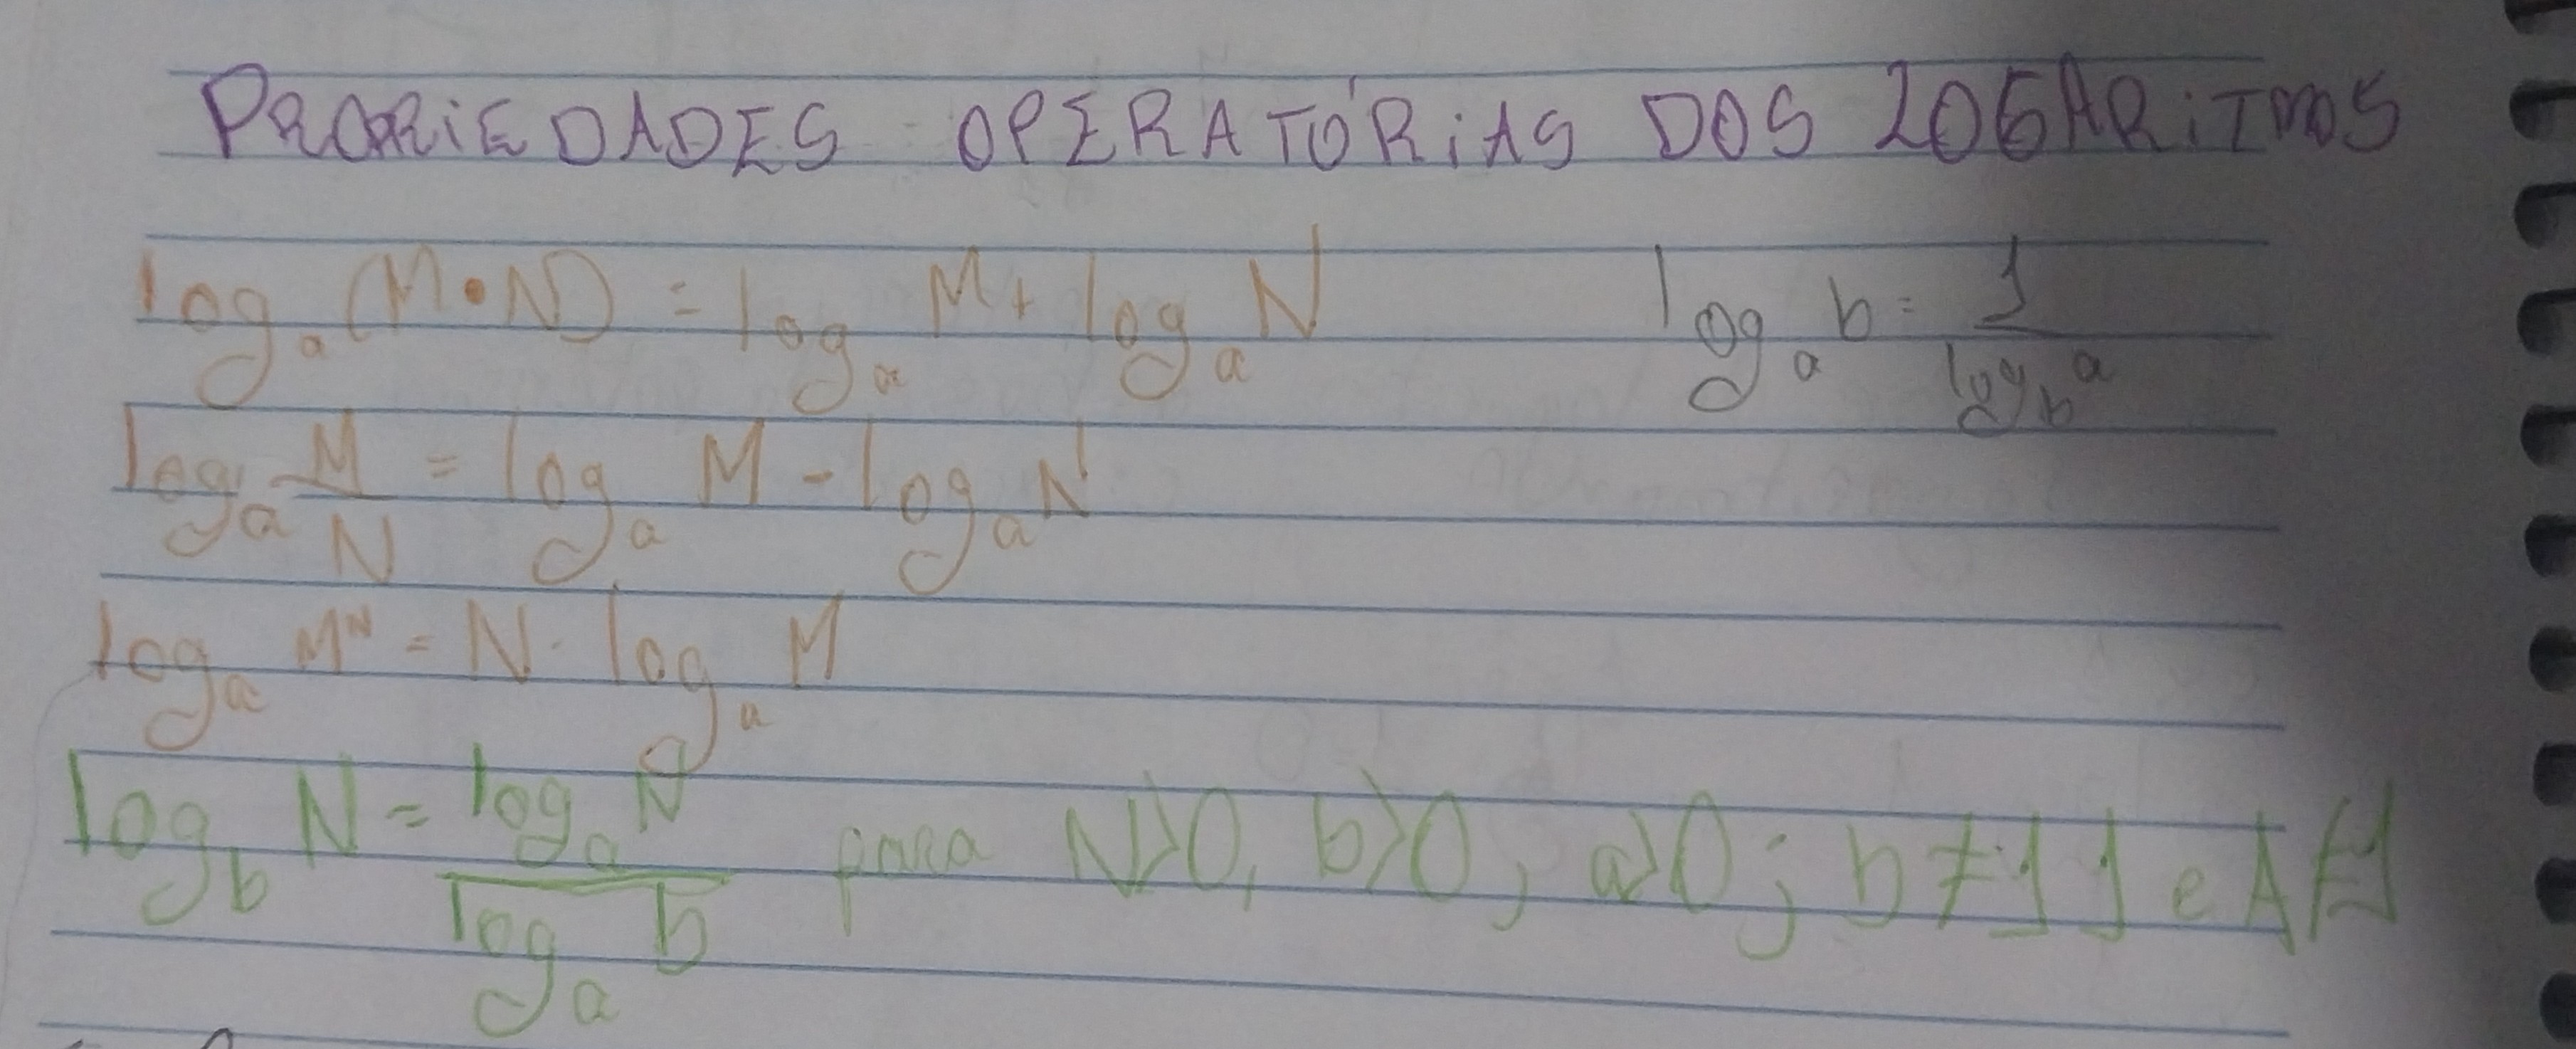 PROPRIEDADES OPERATÓRIAS DOS LOGARITMOS
log_a (M•N) = log_a M + log_a N
log_a b = 1/log_b a
log_a M/N = log_a M - log_a N
log_a M^N = N · log_a M
log_b N = log_a N/log_a b para N>0, b>0, a>0; b≠1 1 e A≠1